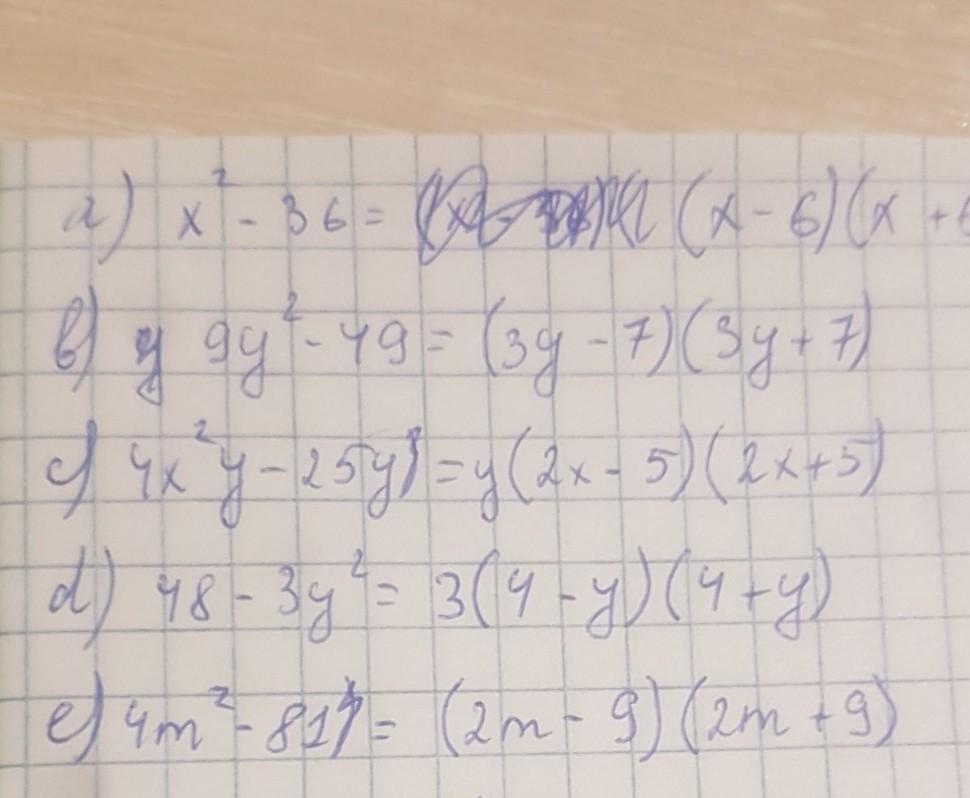 a) x² - 36 = (x - 6)(x + 6
b) y 9y² - 49 = (3y - 7)(3y + 7)
c) 4x²y - 25y) = y(2x - 5)(2x + 5)
d) 48 - 3y² = 3(4 - y)(4 + y)
e) 4m² - 81) = (2m - 9)(2m + 9)